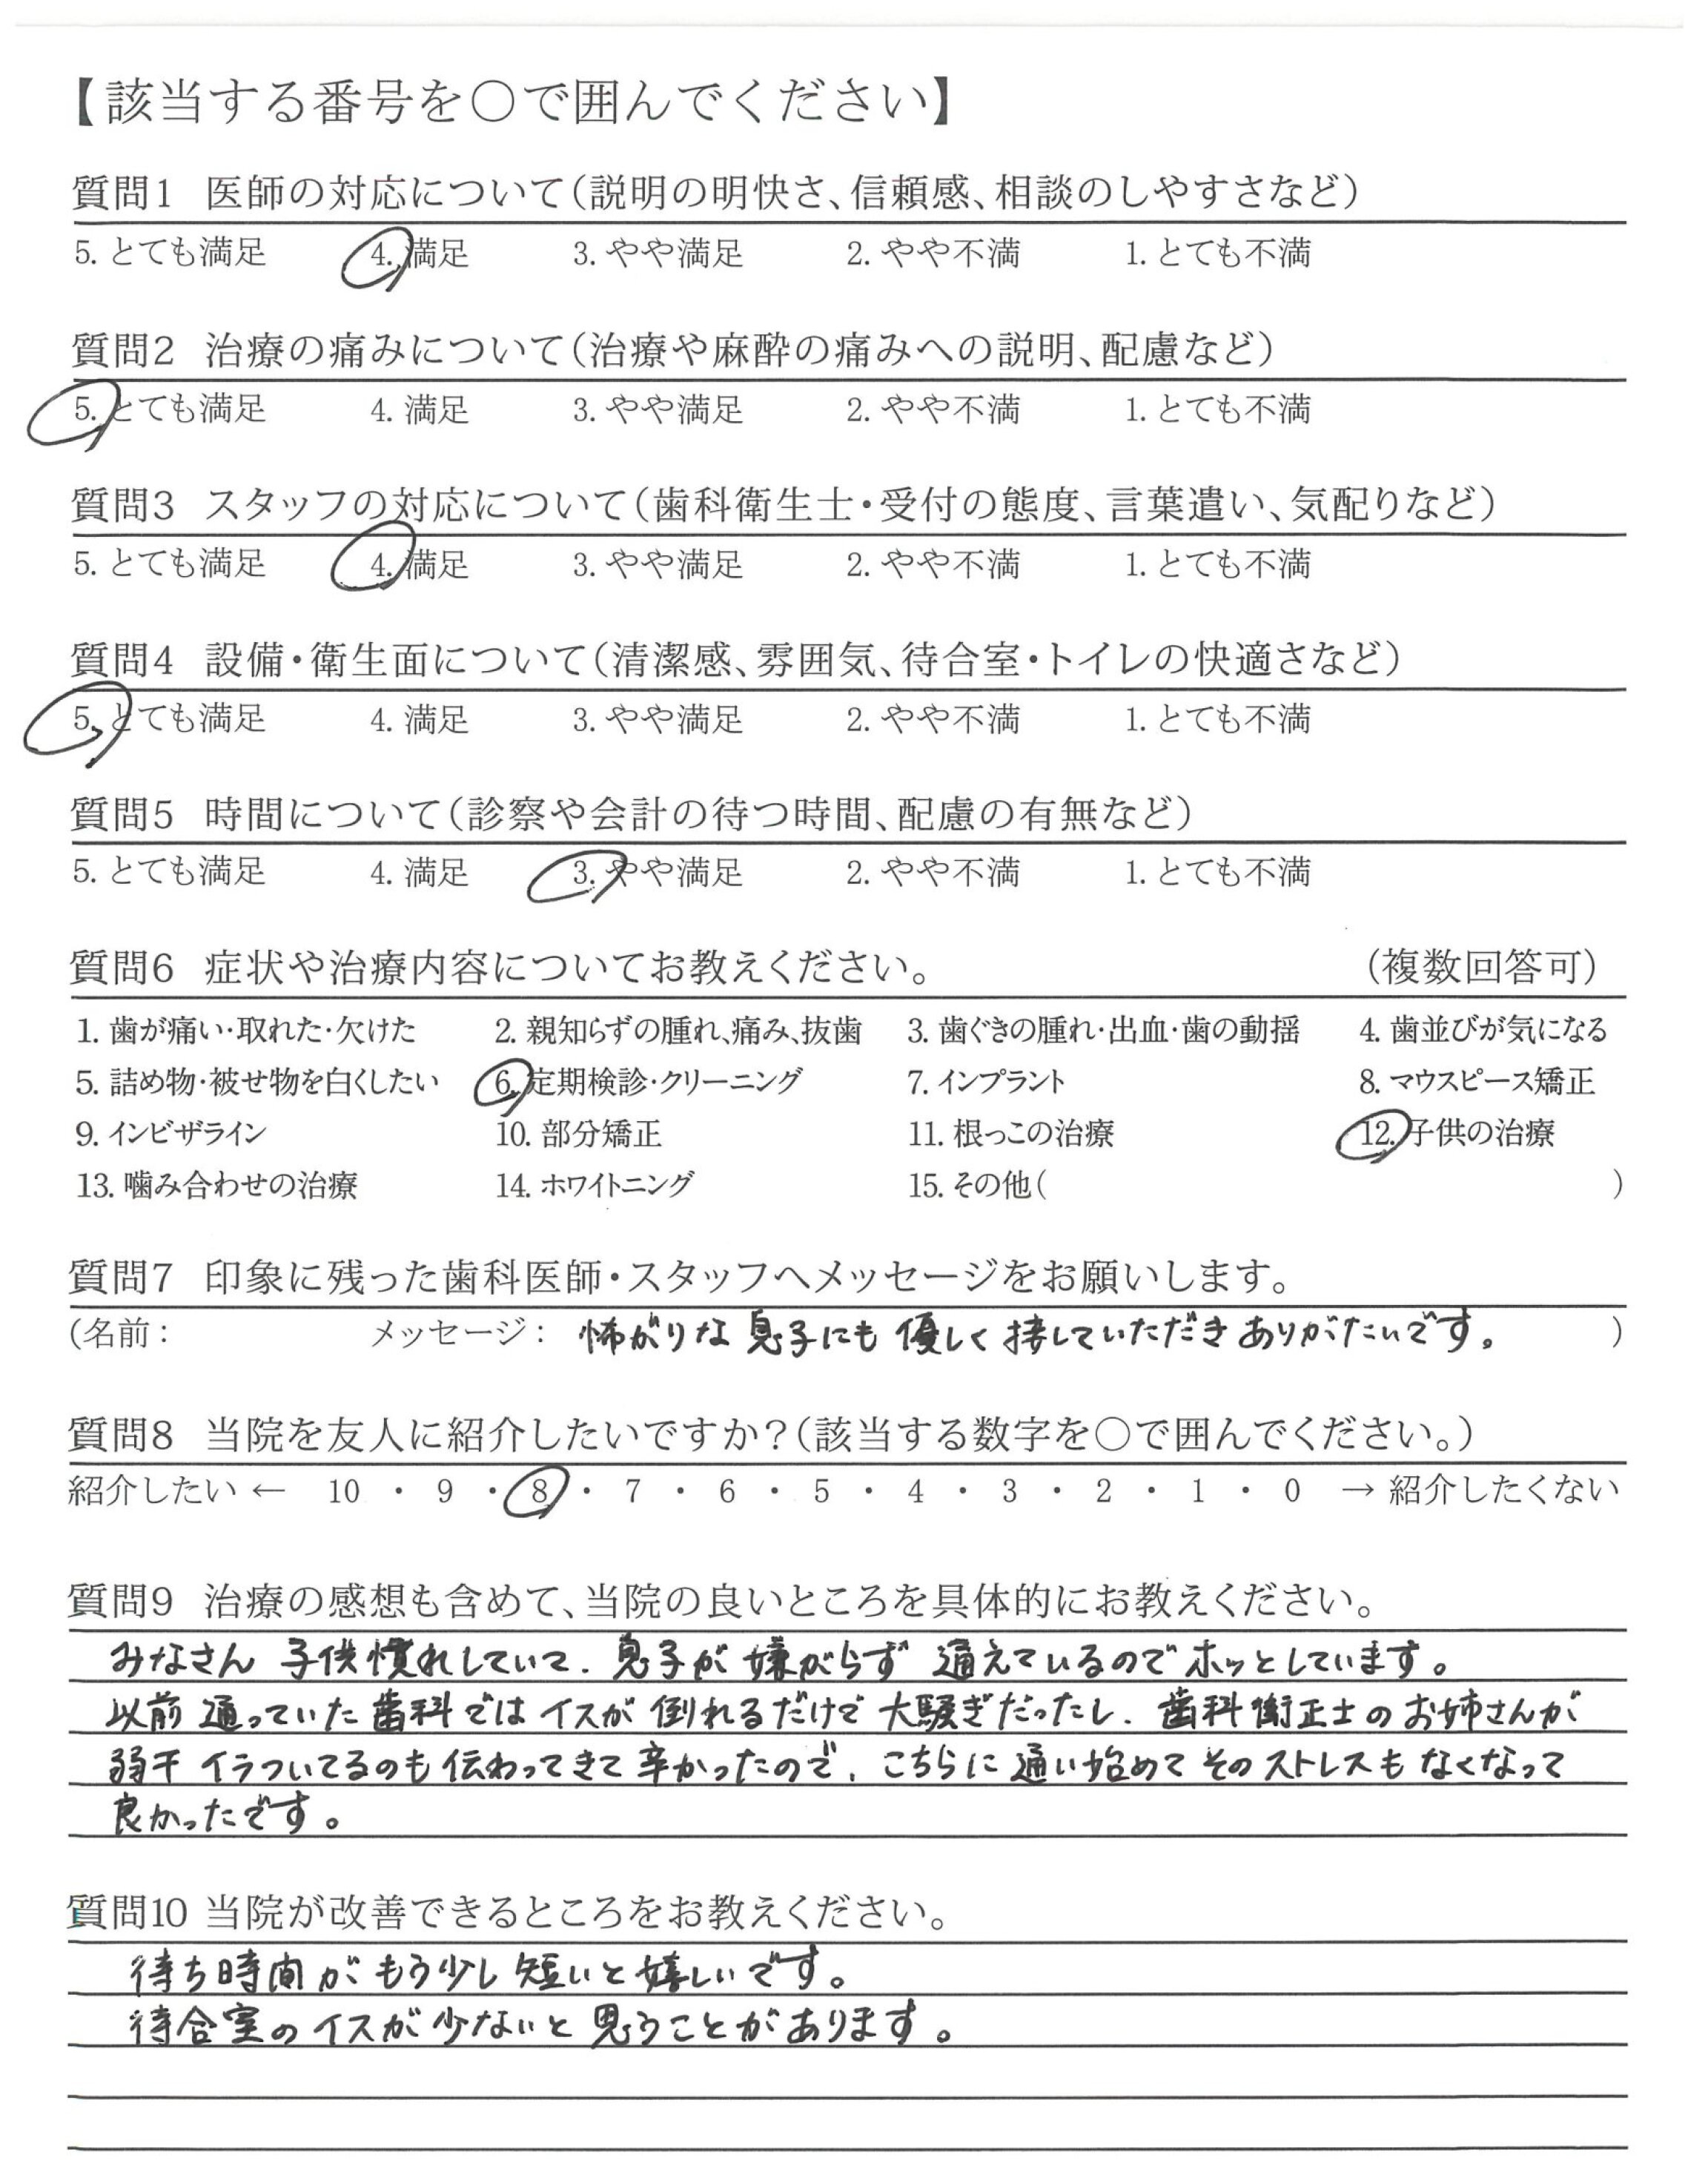 【該当する番号を○で囲んでください】
質問1 医師の対応について(説明の明快さ、信頼感、相談のしやすさなど)
5. とても満足 4. 満足 3. やや満足 2. やや不満 1. とても不満
質問2 治療の痛みについて(治療や麻酔の痛みへの説明、配慮など)
5. とても満足 4. 満足 3. やや満足 2. やや不満 1. とても不満
質問3 スタッフの対応について(歯科衛生士・受付の態度、言葉遣い、気配りなど)
5. とても満足 4. 満足 3. やや満足 2. やや不満 1. とても不満
質問4 設備・衛生面について(清潔感、雰囲気、待合室・トイレの快適さなど)
5. とても満足 4. 満足 3. やや満足 2. やや不満 1. とても不満
質問5 時間について(診察や会計の待つ時間、配慮の有無など)
5. とても満足 4. 満足 3. やや満足 2. やや不満 1. とても不満
質問6 症状や治療内容についてお教えください。 (複数回答可)
1. 歯が痛い・取れた・欠けた 2. 親知らずの腫れ、痛み、抜歯 3. 歯ぐきの腫れ・出血・歯の動揺 4. 歯並びが気になる
5. 詰め物・被せ物を白くしたい 6. 定期検診・クリーニング 7. インプラント 8. マウスピース矯正
9. インビザライン 10. 部分矯正 11. 根っこの治療 12. 子供の治療
13. 噛み合わせの治療 14. ホワイトニング 15. その他( )
質問7 印象に残った歯科医師・スタッフへメッセージをお願いします。
(名前： メッセージ： 怖がりな息子にも優しく接していただきありがたいです。 )
質問8 当院を友人に紹介したいですか？(該当する数字を○で囲んでください。)
紹介したい ← 10 ・ 9 ・ 8 ・ 7 ・ 6 ・ 5 ・ 4 ・ 3 ・ 2 ・ 1 ・ 0 → 紹介したくない
質問9 治療の感想も含めて、当院の良いところを具体的にお教えください。
みなさん子供慣れしていて、息子が嫌がらず通えているのでホッとしています。
以前通っていた歯科ではイスが倒れるだけで大騒ぎだったし、歯科衛正士のお姉さんが
弱干イラついてるのも伝わってきて辛かったので、こちらに通い始めてそのストレスもなくなって
良かったです。
質問10 当院が改善できるところをお教えください。
待ち時間がもう少し短いと嬉しいです。
待合室のイスが少ないと思うことがあります。